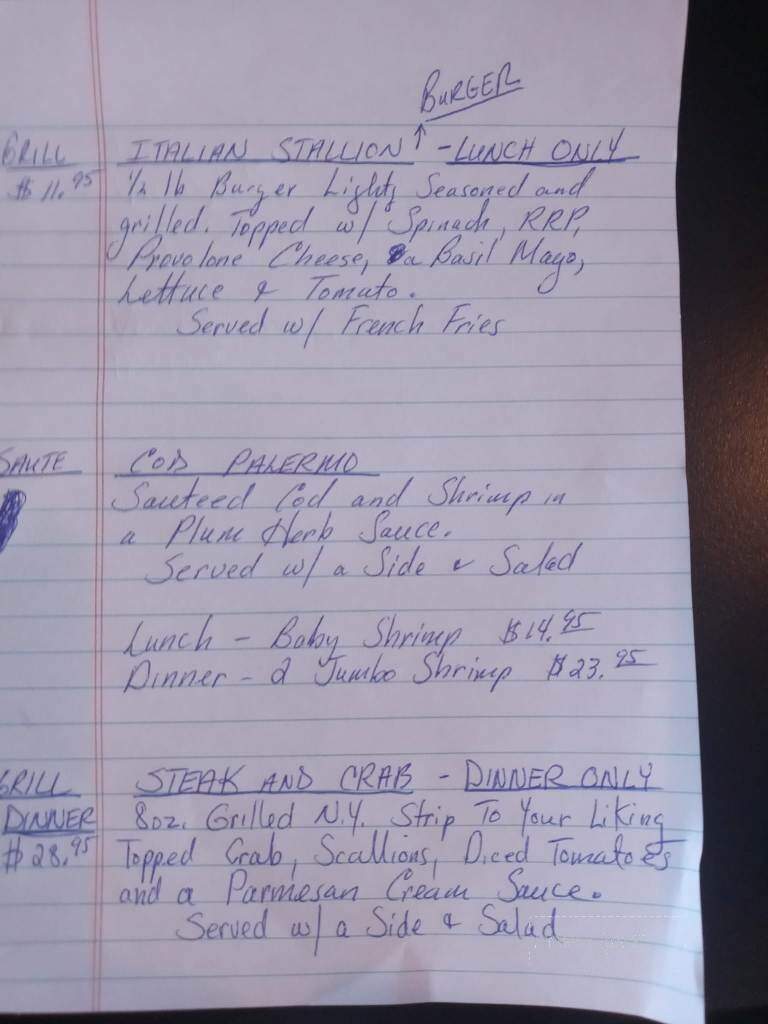 BURGER
GRILL ITALIAN STALLION ↑ - LUNCH ONLY
$11.95 1/2 lb Burger Lightly Seasoned and
grilled. Topped w/ Spinach, RRP,
Provolone Cheese, a Basil Mayo,
Lettuce & Tomato.
Served w/ French Fries
SAUTE COD PALERMO
Sauteed Cod and Shrimp in
a Plum Herb Sauce.
Served w/ a Side & Salad
Lunch - Baby Shrimp $14.95
Dinner - 2 Jumbo Shrimp $23.95
GRILL STEAK AND CRAB - DINNER ONLY
DINNER 8oz. Grilled N.Y. Strip To Your Liking
$28.95 Topped Crab, Scallions, Diced Tomatoes
and a Parmesan Cream Sauce.
Served w/ a Side & Salad